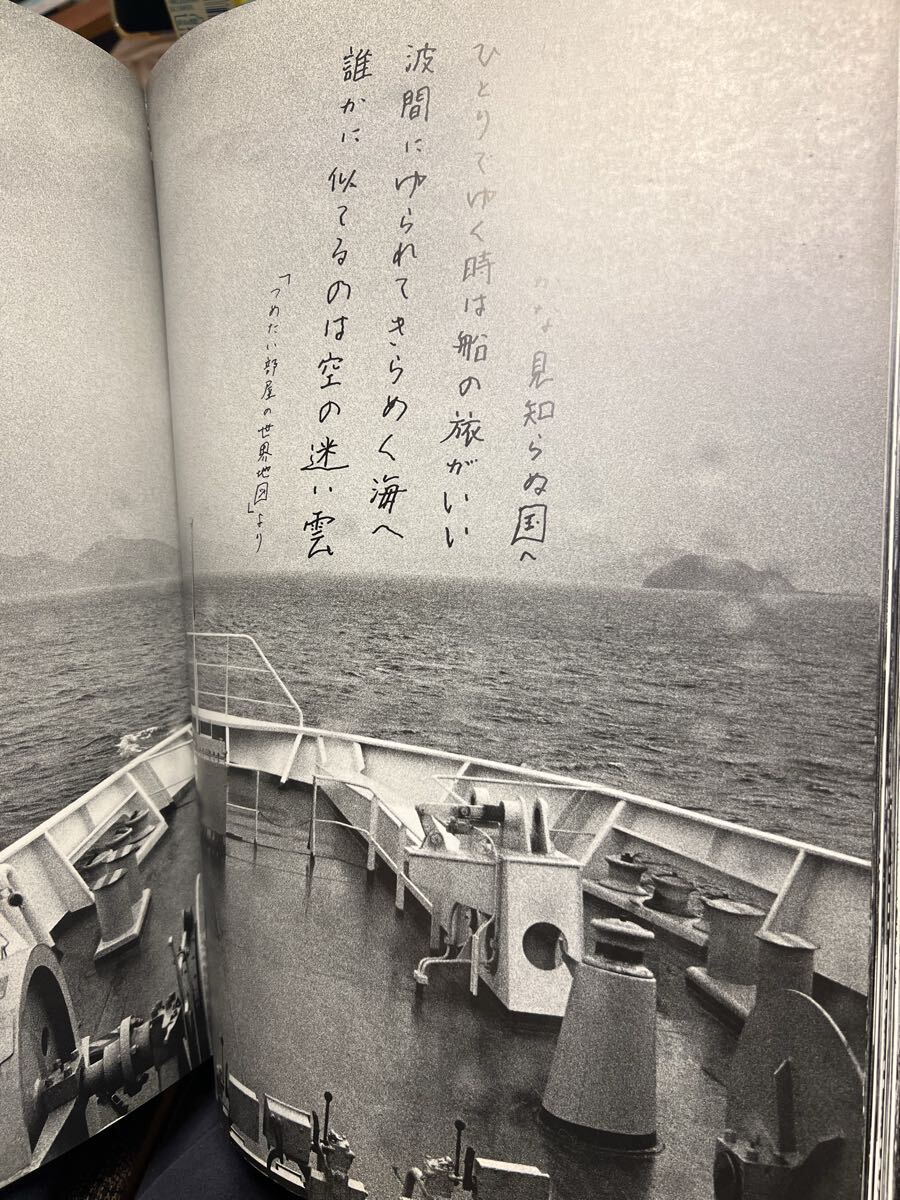 かな見知らぬ国へ
ひとりでゆく時は船の旅がいい
波間にゆられてきらめく海へ
誰かに似てるのは空の迷い雲
「つめたい部屋の世界地図」より